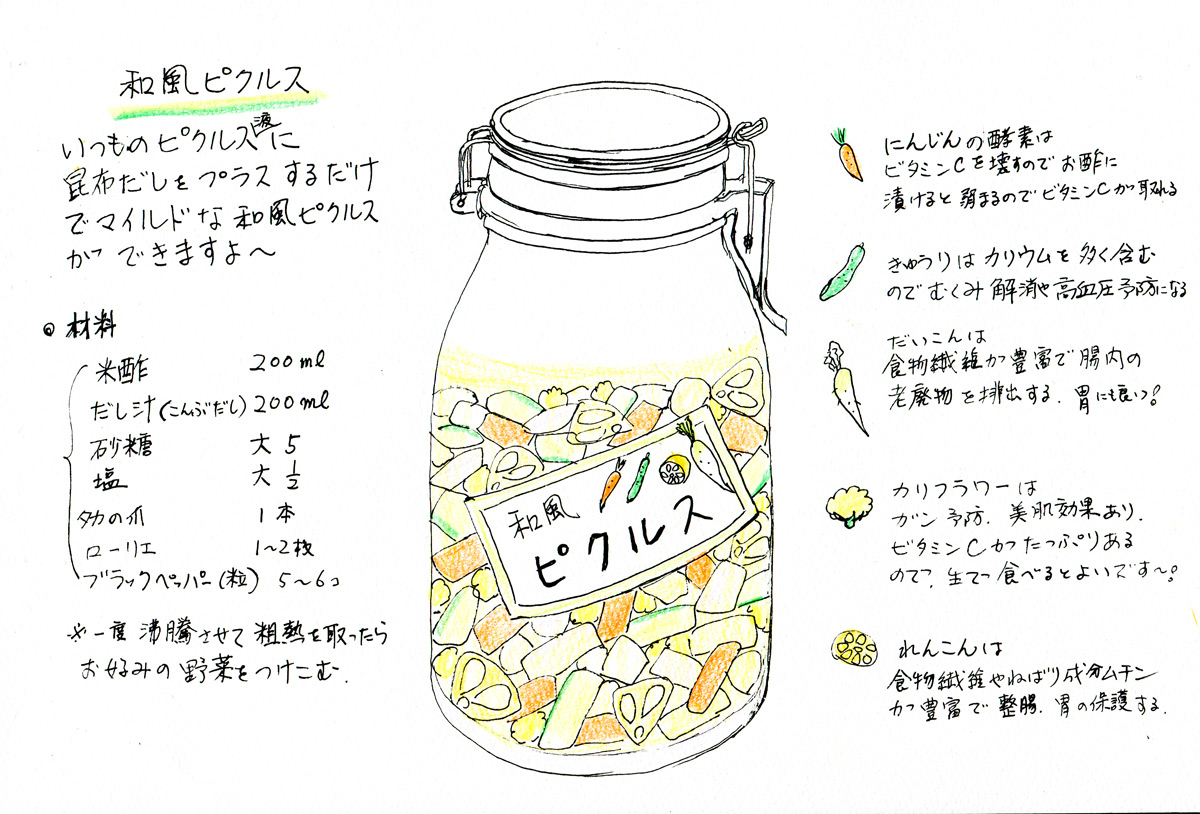 和風ピクルス
いつものピクルス液に
昆布だしをプラスするだけ
でマイルドな和風ピクルス
ができますよ〜
◎材料
米酢 200ml
だし汁(こんぶだし) 200ml
砂糖 大5
塩 大1/2
タカの爪 1本
ローリエ 1〜2枚
ブラックペッパー(粒) 5〜6コ
※一度沸騰させて粗熱を取ったら
お好みの野菜をつけこむ.
和風
ピクルス
にんじんの酵素は
ビタミンCを壊すのでお酢に
漬けると弱まるのでビタミンCが取れる
きゅうりはカリウムを多く含む
のでむくみ解消や高血圧予防になる
だいこんは
食物繊維が豊富で腸内の
老廃物を排出する. 胃にも良い♪
カリフラワーは
ガン予防. 美肌効果あり.
ビタミンCがたっぷりある
ので、生で食べるとよいです〜♪
れんこんは
食物繊維やねばり成分ムチン
が豊富で整腸. 胃の保護する.